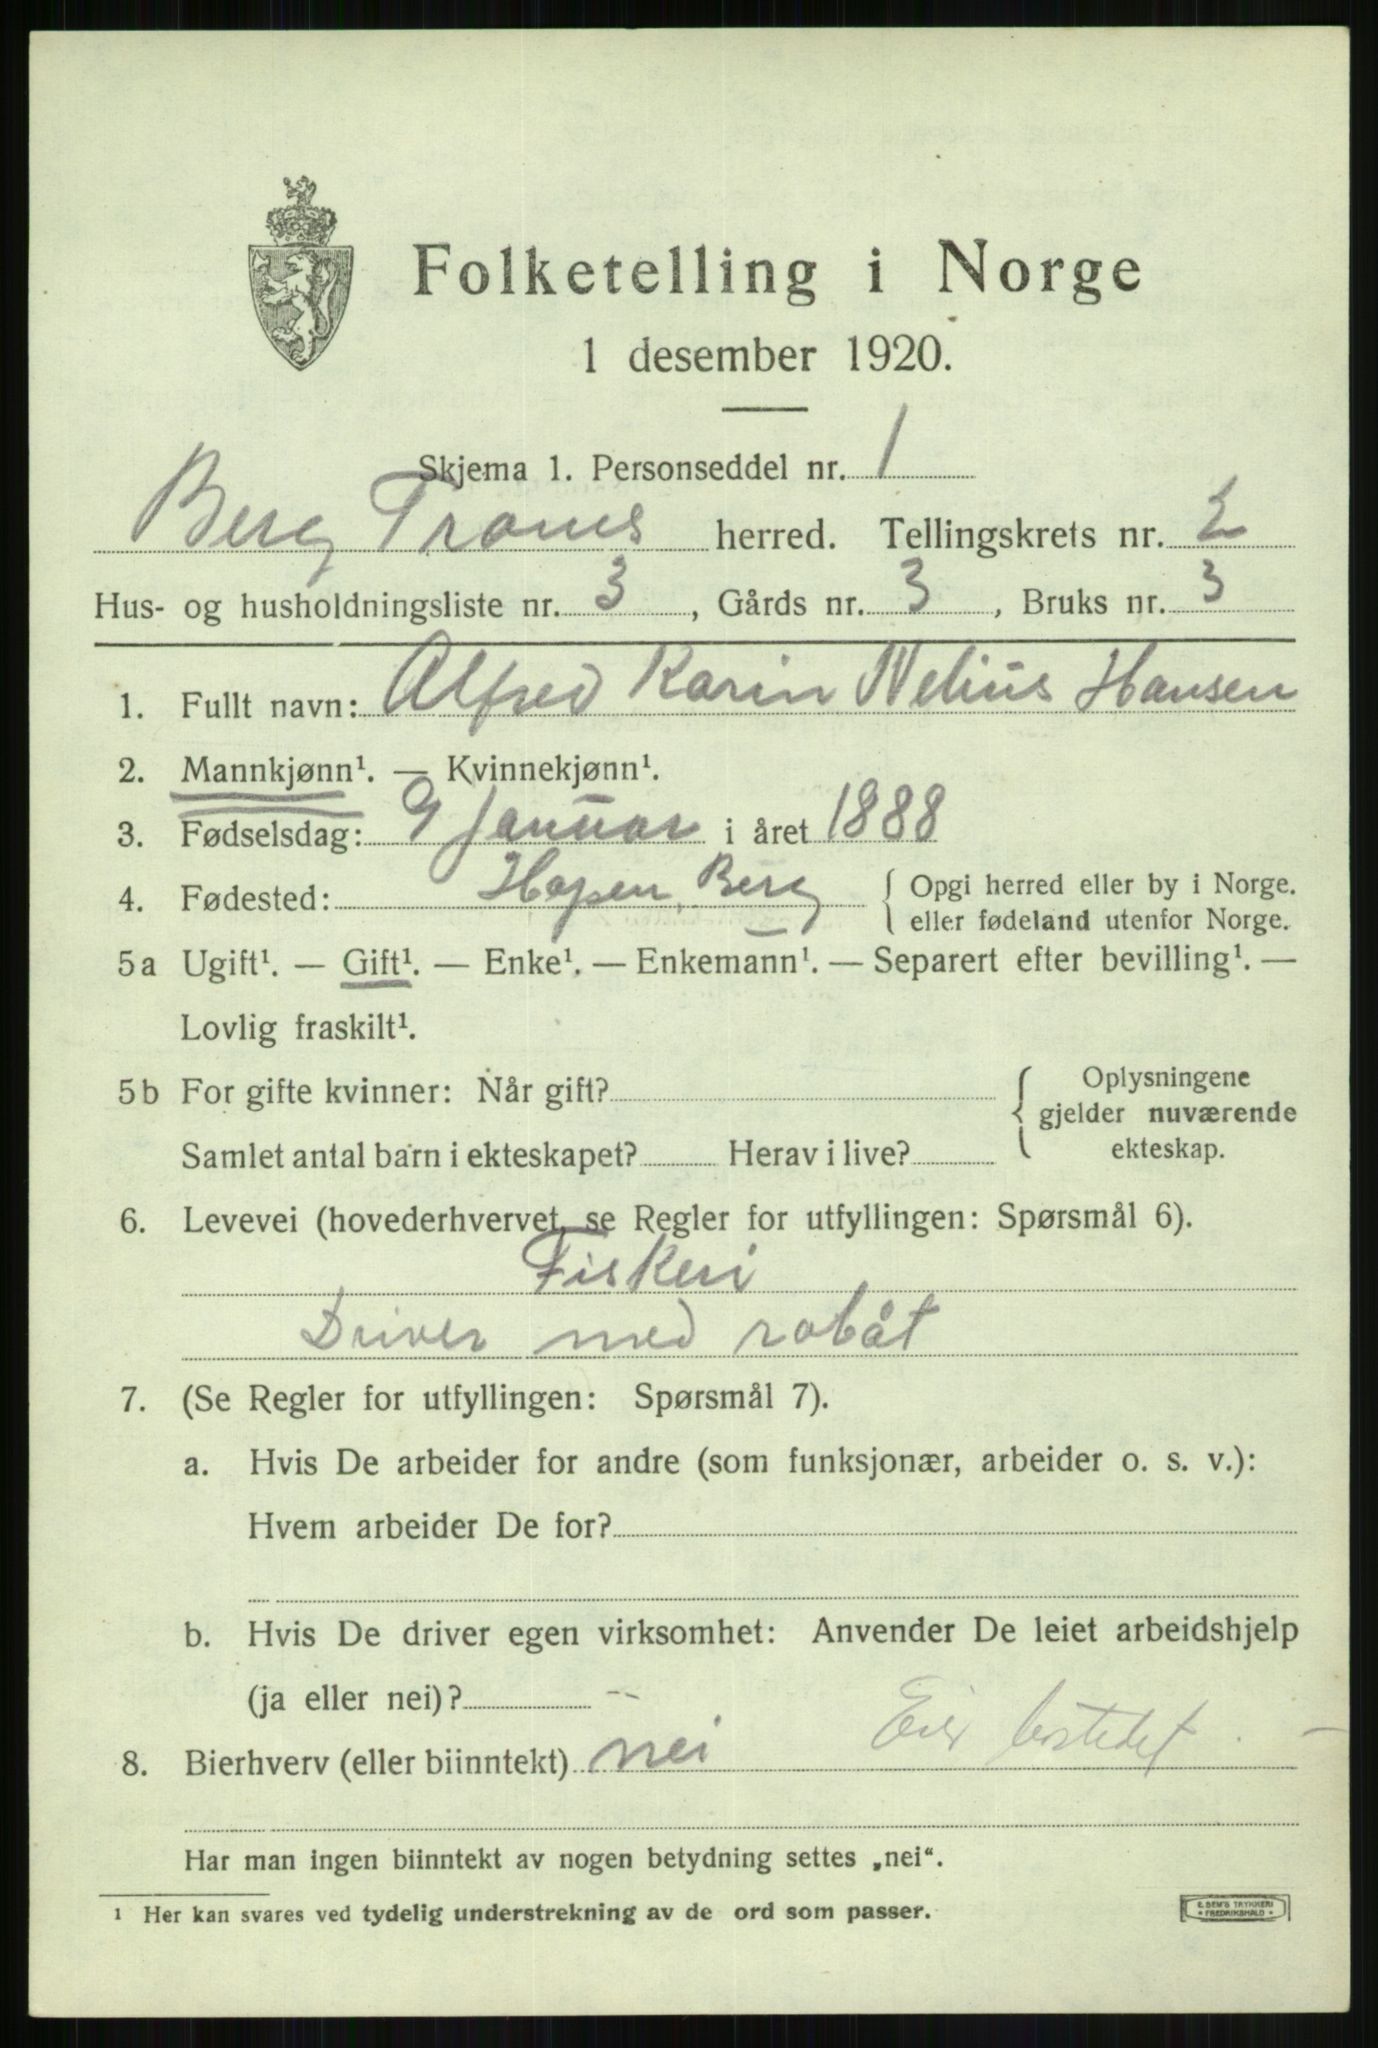 Folketelling i Norge
1 desember 1920.
Skjema 1. Personseddel nr. 1
Berg Troms herred. Tellingskrets nr. 2
Hus- og husholdningsliste nr. 3, Gårds nr. 3, Bruks nr. 3
1. Fullt navn: Alfred Karin Nelius Hansen
2. Mannkjønn¹. — Kvinnekjønn¹.
3. Fødselsdag: 9 Januar i året 1888
4. Fødested: Hopen, Berg { Opgi herred eller by i Norge.
eller fødeland utenfor Norge.
5a Ugift¹. — Gift¹. — Enke¹. — Enkemann¹. — Separert efter bevilling¹. —
Lovlig fraskilt¹.
5b For gifte kvinner: Når gift? { Oplysningene
gjelder nuværende
ekteskap.
Samlet antal barn i ekteskapet? Herav i live?
6. Levevei (hovederhvervet, se Regler for utfyllingen: Spørsmål 6).
Fiskeri
Driver med robåt
7. (Se Regler for utfyllingen: Spørsmål 7).
a. Hvis De arbeider for andre (som funksjonær, arbeider o. s. v.):
Hvem arbeider De for?
b. Hvis De driver egen virksomhet: Anvender De leiet arbeidshjelp
(ja eller nei)?
Eier bostedet.
8. Bierhverv (eller biinntekt) nei
Har man ingen biinntekt av nogen betydning settes „nei“.
¹ Her kan svares ved tydelig understrekning av de ord som passer.
E. SEM'S TRYKKERI
* FREDRIKSHALD *